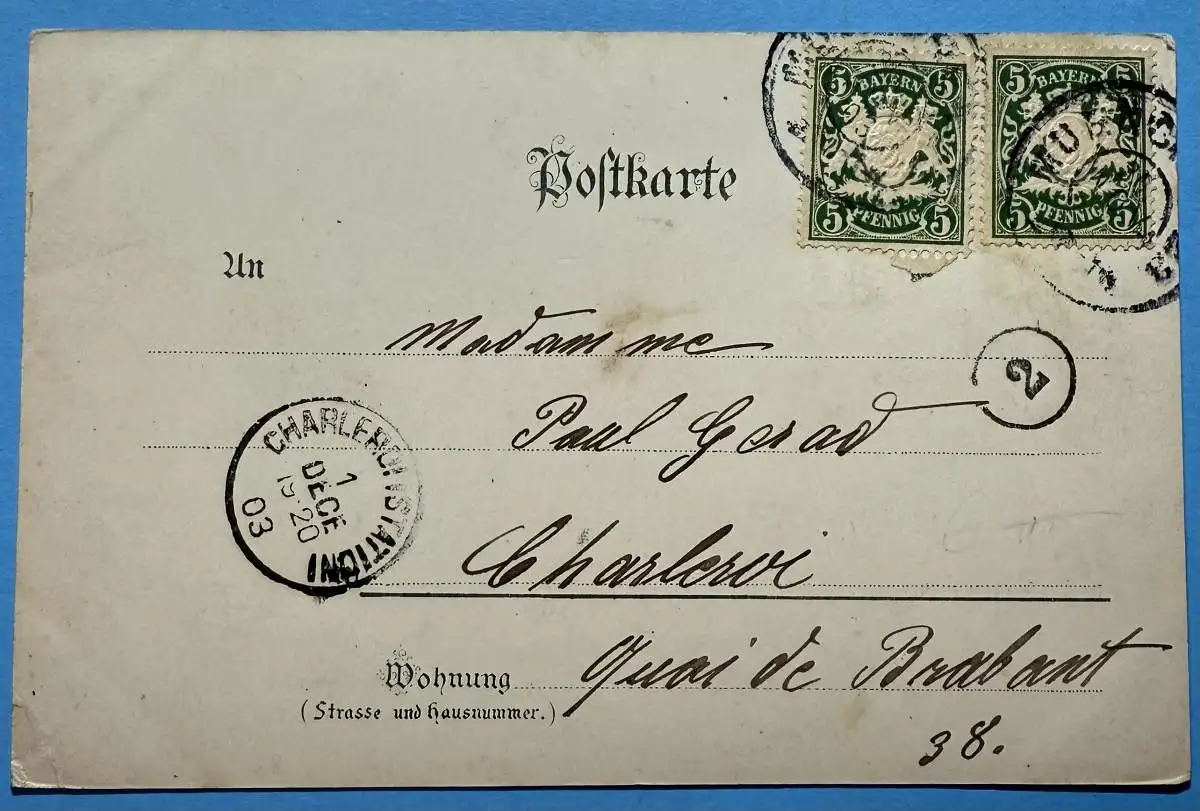 5 BAYERN 5
5 PFENNIG 5
5 BAYERN 5
5 PFENNIG 5
Postkarte
An
Madamme
Paul Gerad
2
CHARLEROI (STATION)
1
DECE
19-20
03
Charleroi
Wohnung
(Strasse und Hausnummer.)
Quai de Brabant
38.